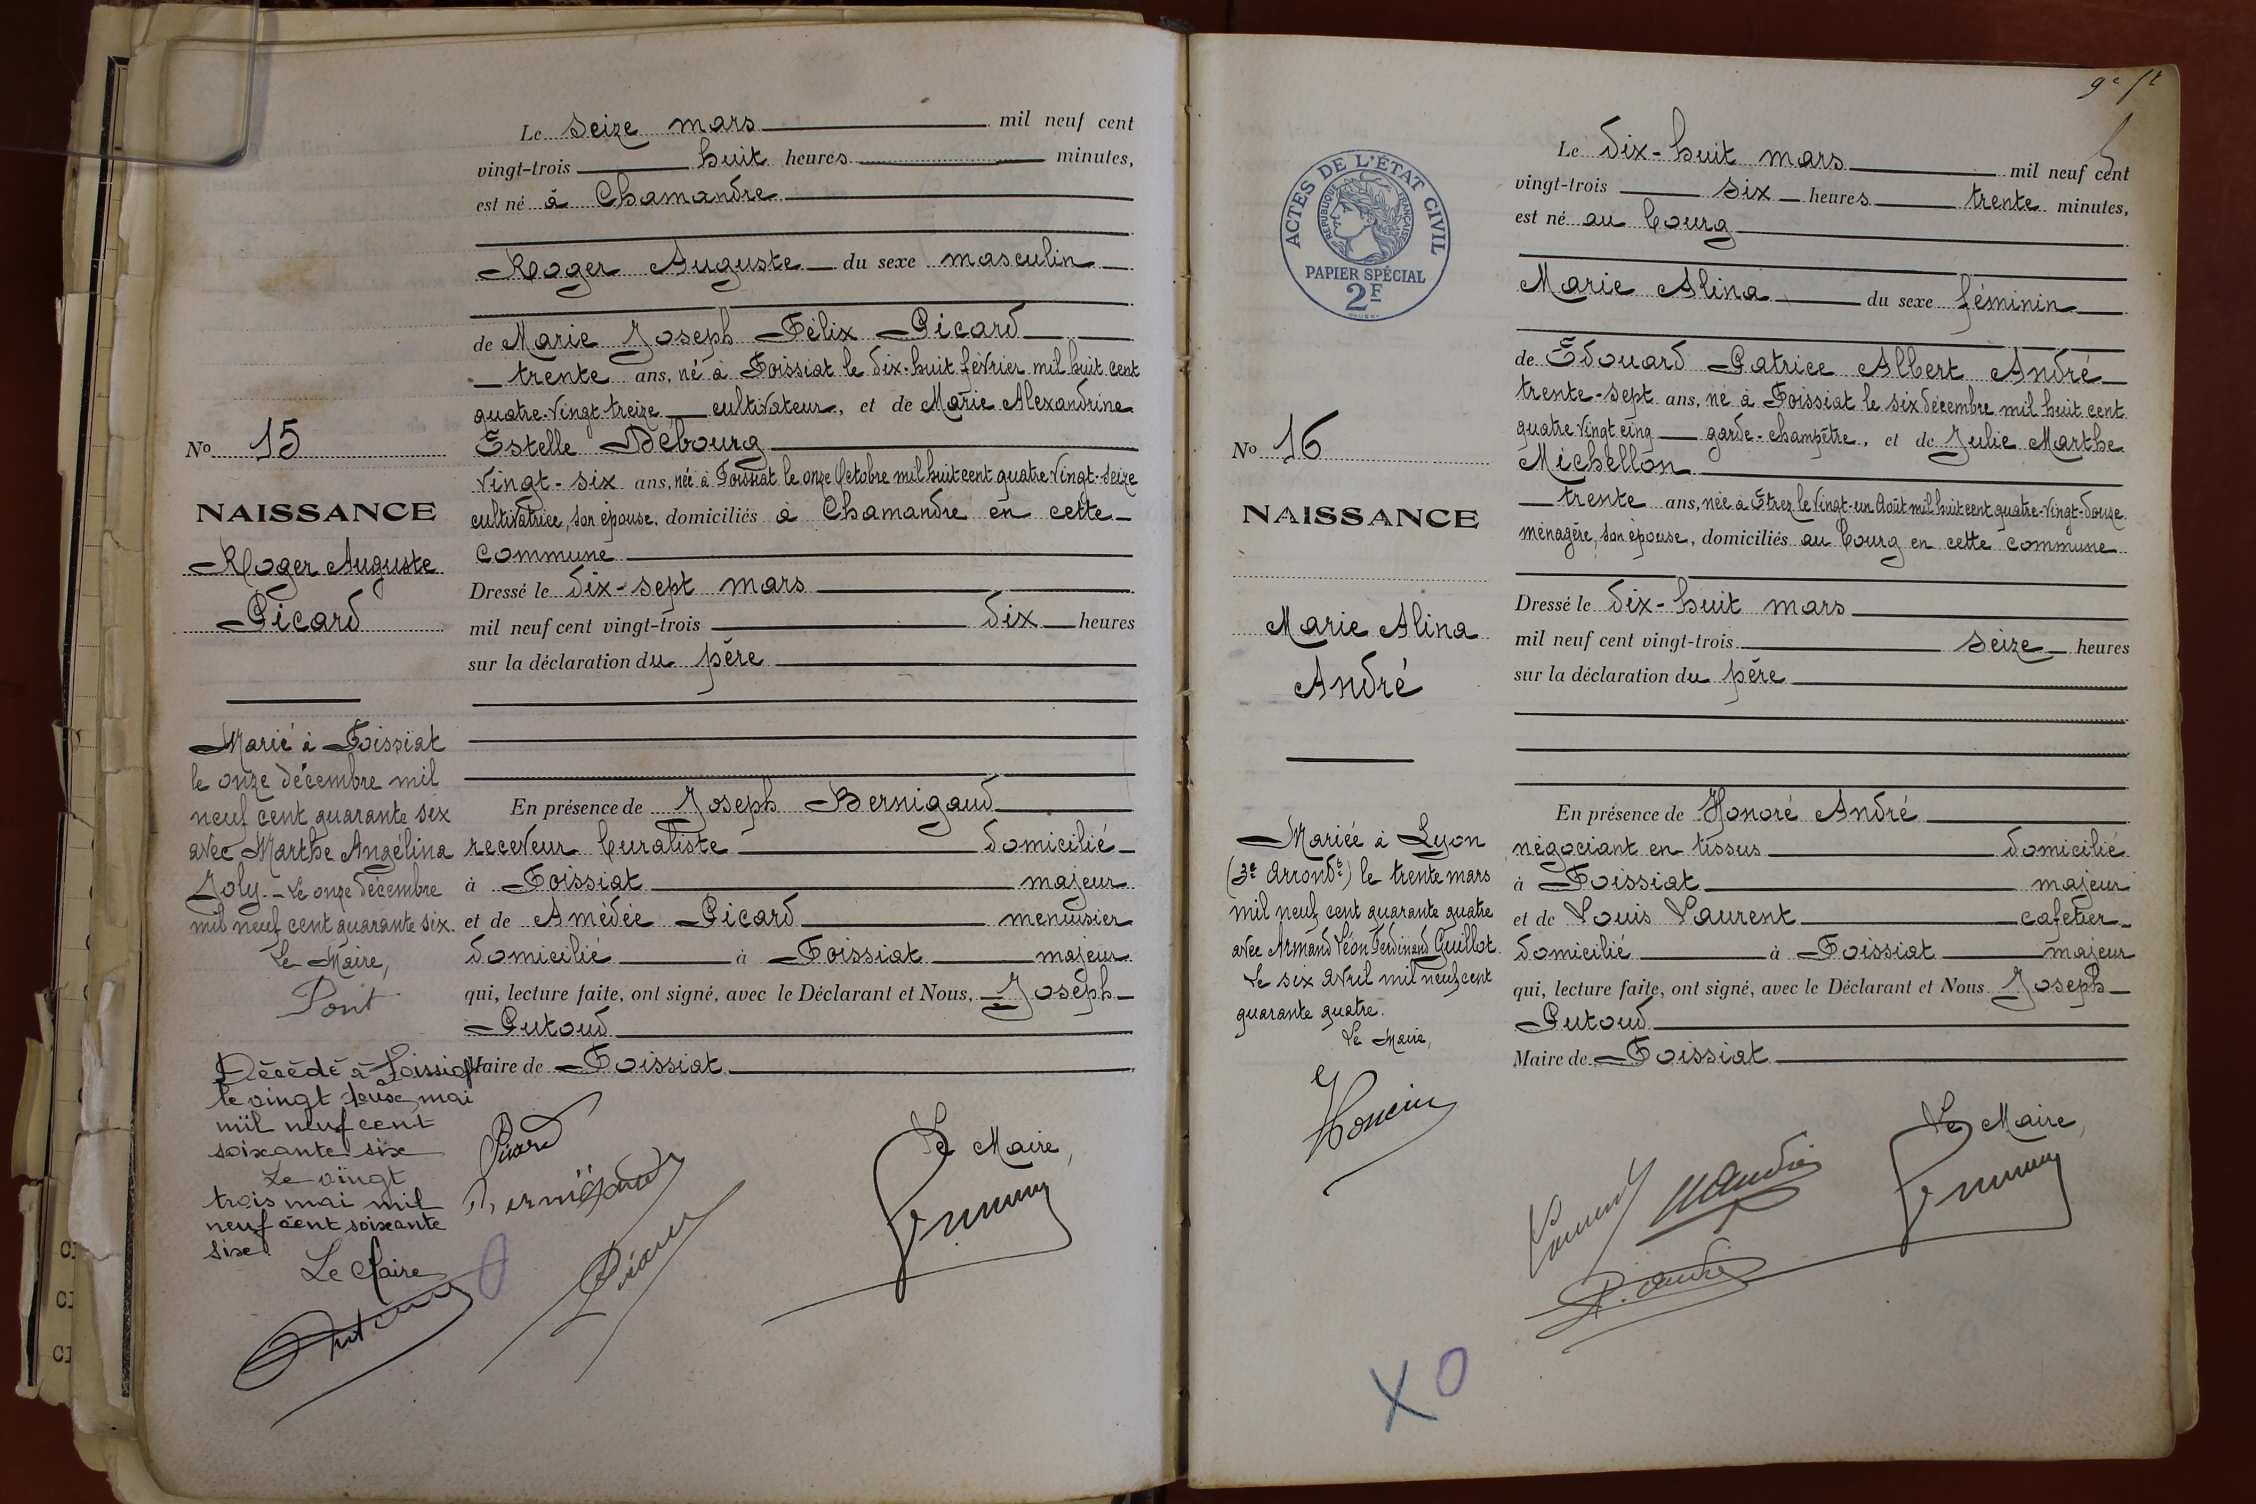 Le seize mars mil neuf cent
vingt-trois huit heures minutes,
est né à Chamandre
Roger Auguste du sexe masculin
de Marie Joseph Félix Picard
trente ans, né à Foissiat le dix-huit février mil huit cent
quatre-vingt treize cultivateur, et de Marie Alexandrine
Estelle Débourg
vingt-six ans, née à Foissiat le onze Octobre mil huit cent quatre vingt-seize
cultivatrice, son épouse, domiciliés à Chamandre en cette
commune
Dressé le dix-sept mars
mil neuf cent vingt-trois dix heures
sur la déclaration du père
En présence de Joseph Bernigaud
receveur buraliste domicilié
à Foissiat majeur
et de Amédée Picard menuisier
domicilié à Foissiat majeur
qui, lecture faite, ont signé, avec le Déclarant et Nous, Joseph
Putoud
Maire de Foissiat
Le Maire,
Picard
Bernigaud
Picard
No 15
NAISSANCE
Roger Auguste
Picard
Marié à Foissiat
le onze décembre mil
neuf cent quarante six
avec Marthe Angélina
Joly. Le onze décembre
mil neuf cent quarante six.
Le Maire,
Pont
Décédé à Foissiat
le vingt deux mai
mil neuf cent
soixante six
Le vingt
trois mai mil
neuf cent soixante
six
Le Maire
9e ft
ACTES DE L'ÉTAT CIVIL
REPUBLIQUE FRANÇAISE
PAPIER SPÉCIAL
2F
Le dix-huit mars mil neuf cent
vingt-trois six heures trente minutes,
est né au bourg
Marie Alina du sexe féminin
de Edouard Patrice Albert André
trente-sept ans, né à Foissiat le six décembre mil huit cent
quatre vingt cinq garde-champêtre, et de Julie Marthe
Michellon
trente ans, née à Etrez le vingt-un Août mil huit cent quatre-vingt-douze
ménagère, son épouse, domiciliés au bourg en cette commune
Dressé le dix-huit mars
mil neuf cent vingt-trois seize heures
sur la déclaration du père
En présence de Honoré André
négociant en tissus domicilié
à Foissiat majeur
et de Louis Laurent cafetier
domicilié à Foissiat majeur
qui, lecture faite, ont signé, avec le Déclarant et Nous Joseph
Putoud
Maire de Foissiat
Le Maire,
Laurent
H André
P. André
No 16
NAISSANCE
Marie Alina
André
Mariée à Lyon
(3e Arrondt) le trente mars
mil neuf cent quarante quatre
avec Armand Léon Ferdinand Guillot
Le six avril mil neuf cent
quarante quatre.
Le Maire,
X O